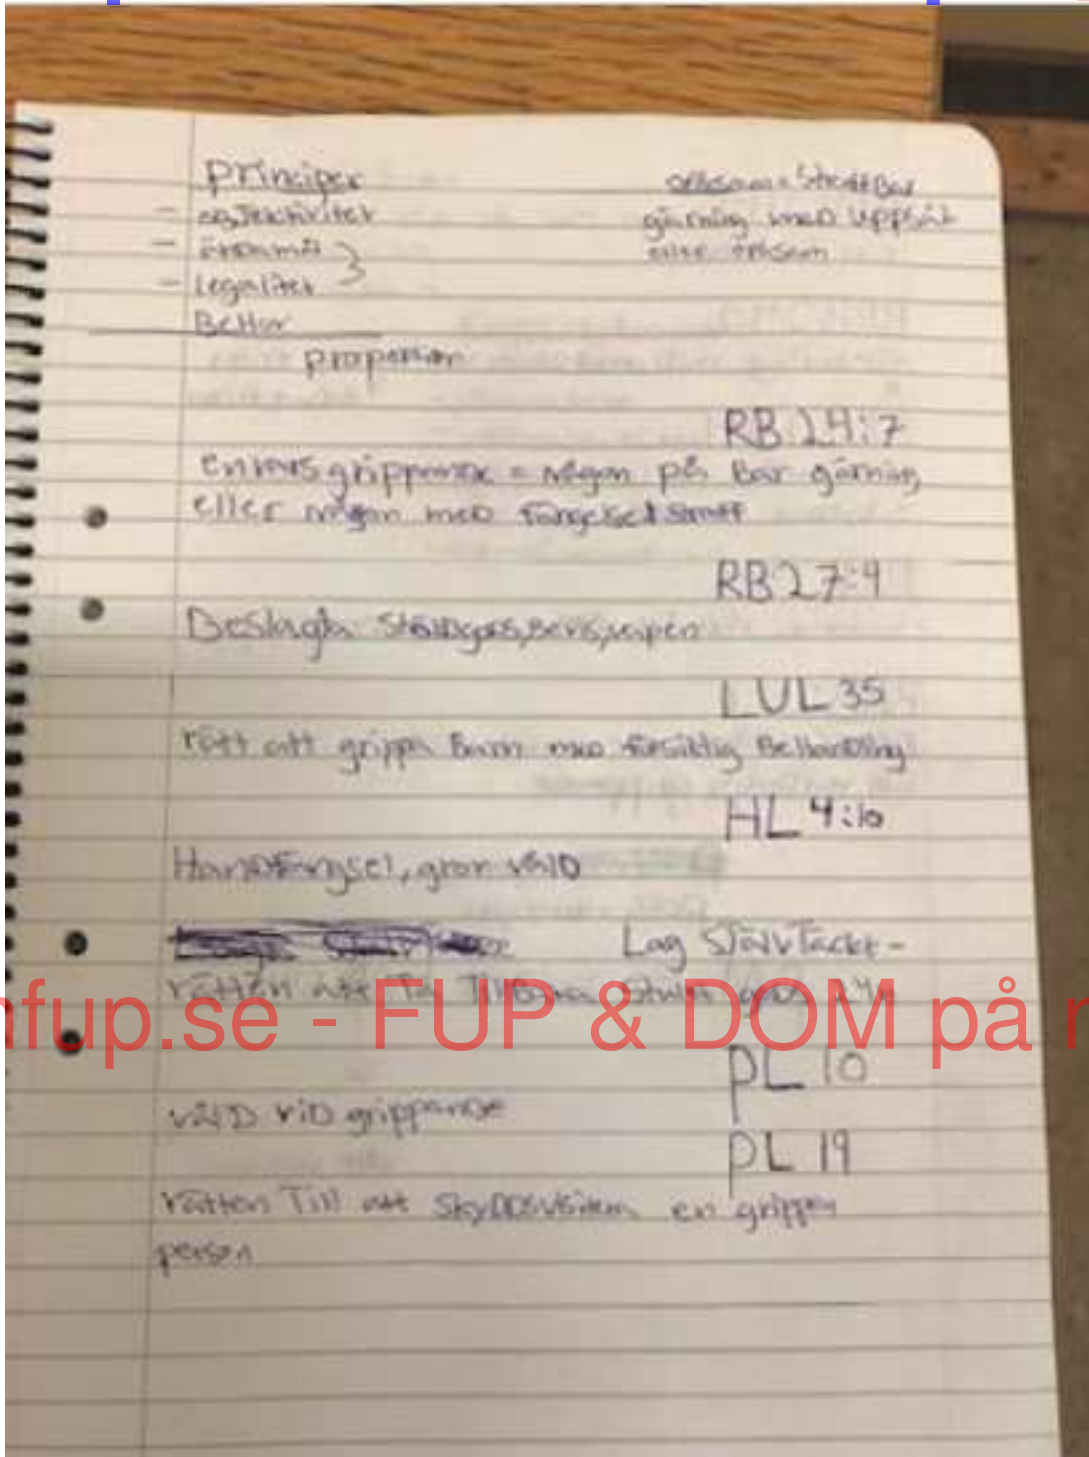 Principer
- objektivitet
- ändamål
- legalitet
Behov
proportion
= Straffbar
gärning med uppsåt
eller oaktsam
RB 24:7
envarsgrippande = någon på Bar gärning
eller någon med fängelsestraff
RB 27:4
Beslagta Stöldgods, Bevis, vapen
LUL 35
rätt att grippa Barn med försiktig Behandling
HL 4:10
HandFängsel, våld
Lag Självtäckt-
rätten att Ta Tillbaka Stulet gods
PL 10
våld vid grippande
PL 19
rätten Till att Skyddsvisitera en grippen
person
nfup.se - FUP & DOM på